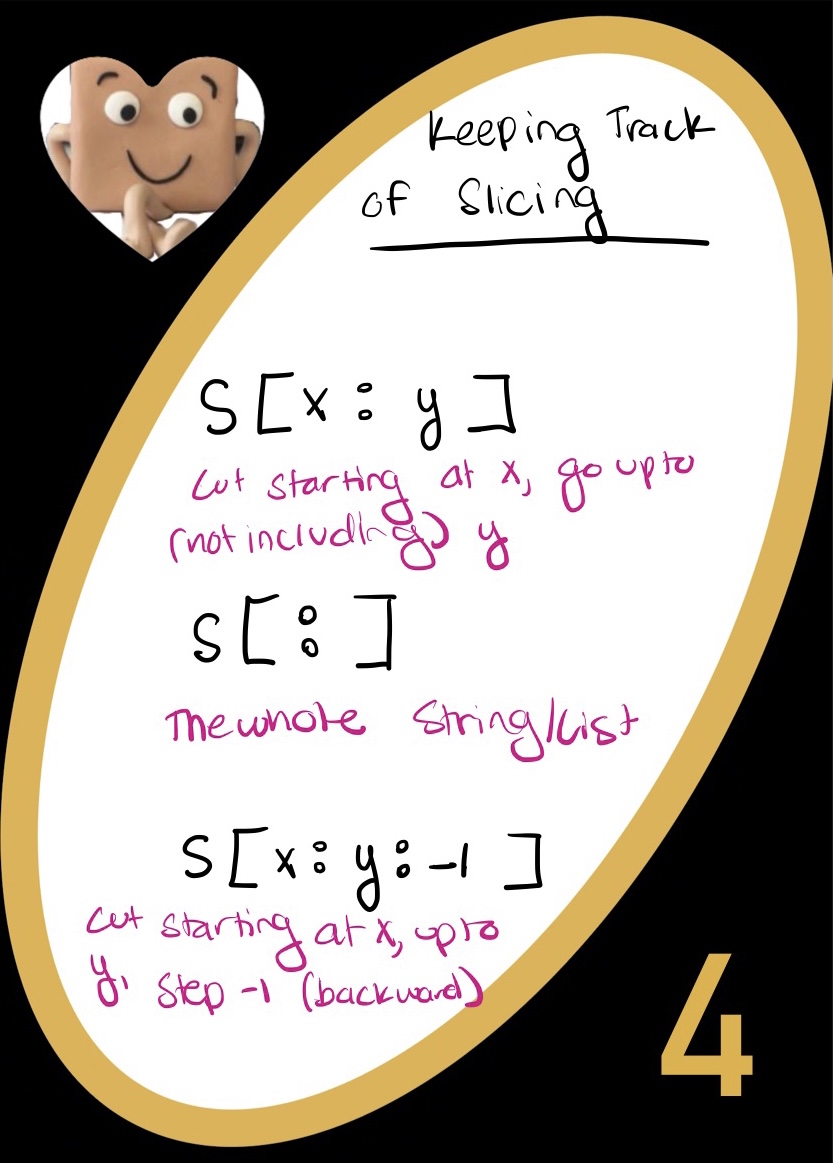 Keeping Track
of Slicing
S[x:y]
Cut starting at x, go up to
(not including) y
S[:]
The whole String/List
S[x:y:-1]
Cut starting at x, up to
y, step -1 (backward)
4